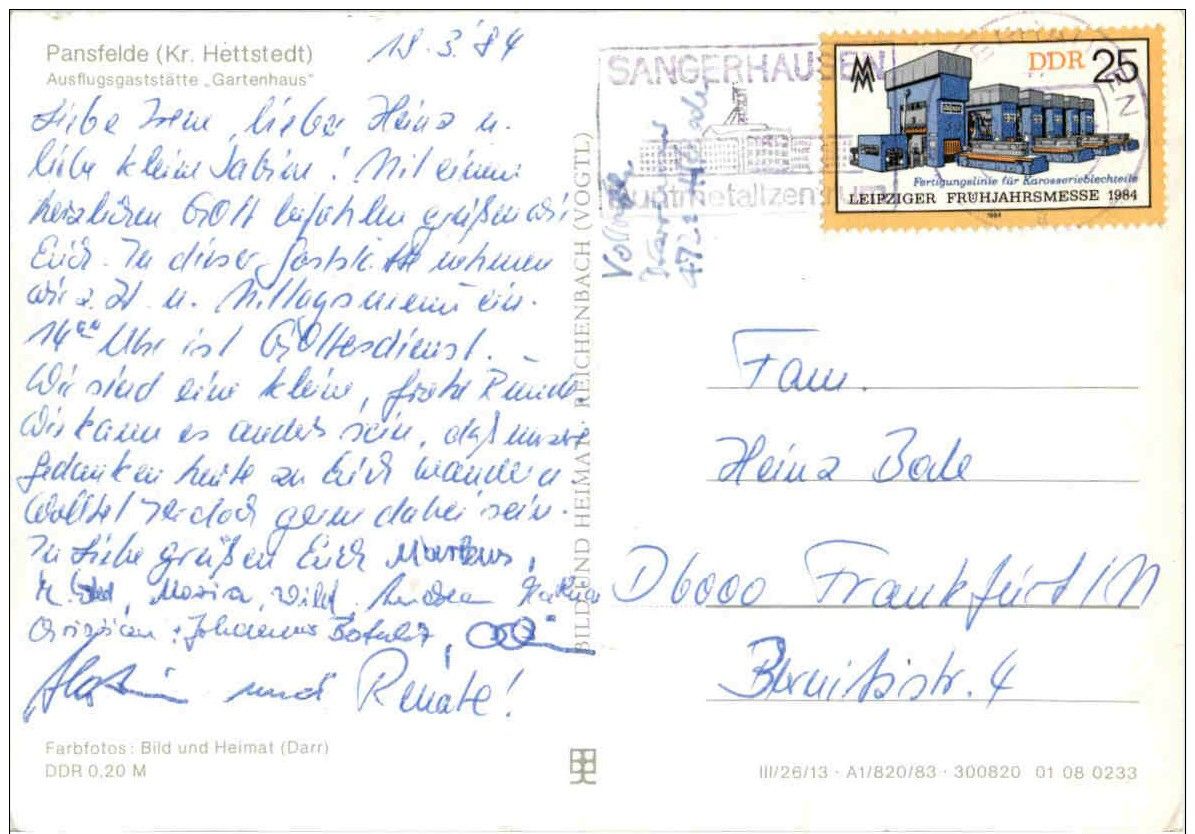 Pansfelde (Kr. Hettstedt)
Ausflugsgaststätte „Gartenhaus"
18.3.84
Liebe Irene, lieber Heinz u.
liebe kleine Sabine! Mit einem
herzlichen GOTT befohlen grüßen wir
Euch. In dieser Gaststätte nehmen
wir z. Zt. u. Mittagsmenü ein.
14°° Uhr ist GOttesdienst.
Wir sind eine kleine, frohe Runde.
Wie kann es anders sein, daß unsere
Gedanken heute zu Euch wandern.
Wolltet Ihr doch gern dabei sein.
In Liebe grüßen Euch Martens,
Maria, Wild, Andrea
Christian: Johannes
und Renate!
Farbfotos: Bild und Heimat (Darr)
DDR 0,20 M
BILD UND HEIMAT REICHENBACH (VOGTL)
SANGERHAUSEN
hauptmetallzentrum
4721
DDR 25
Fertigungslinie für Karosserieblechteile
LEIPZIGER FRÜHJAHRSMESSE 1984
1984
Fam.
Heinz Bode
D6000 Frankfurt/M
Bernitsstr. 4
III/26/13 · A1/820/83 · 300820 01 08 0233